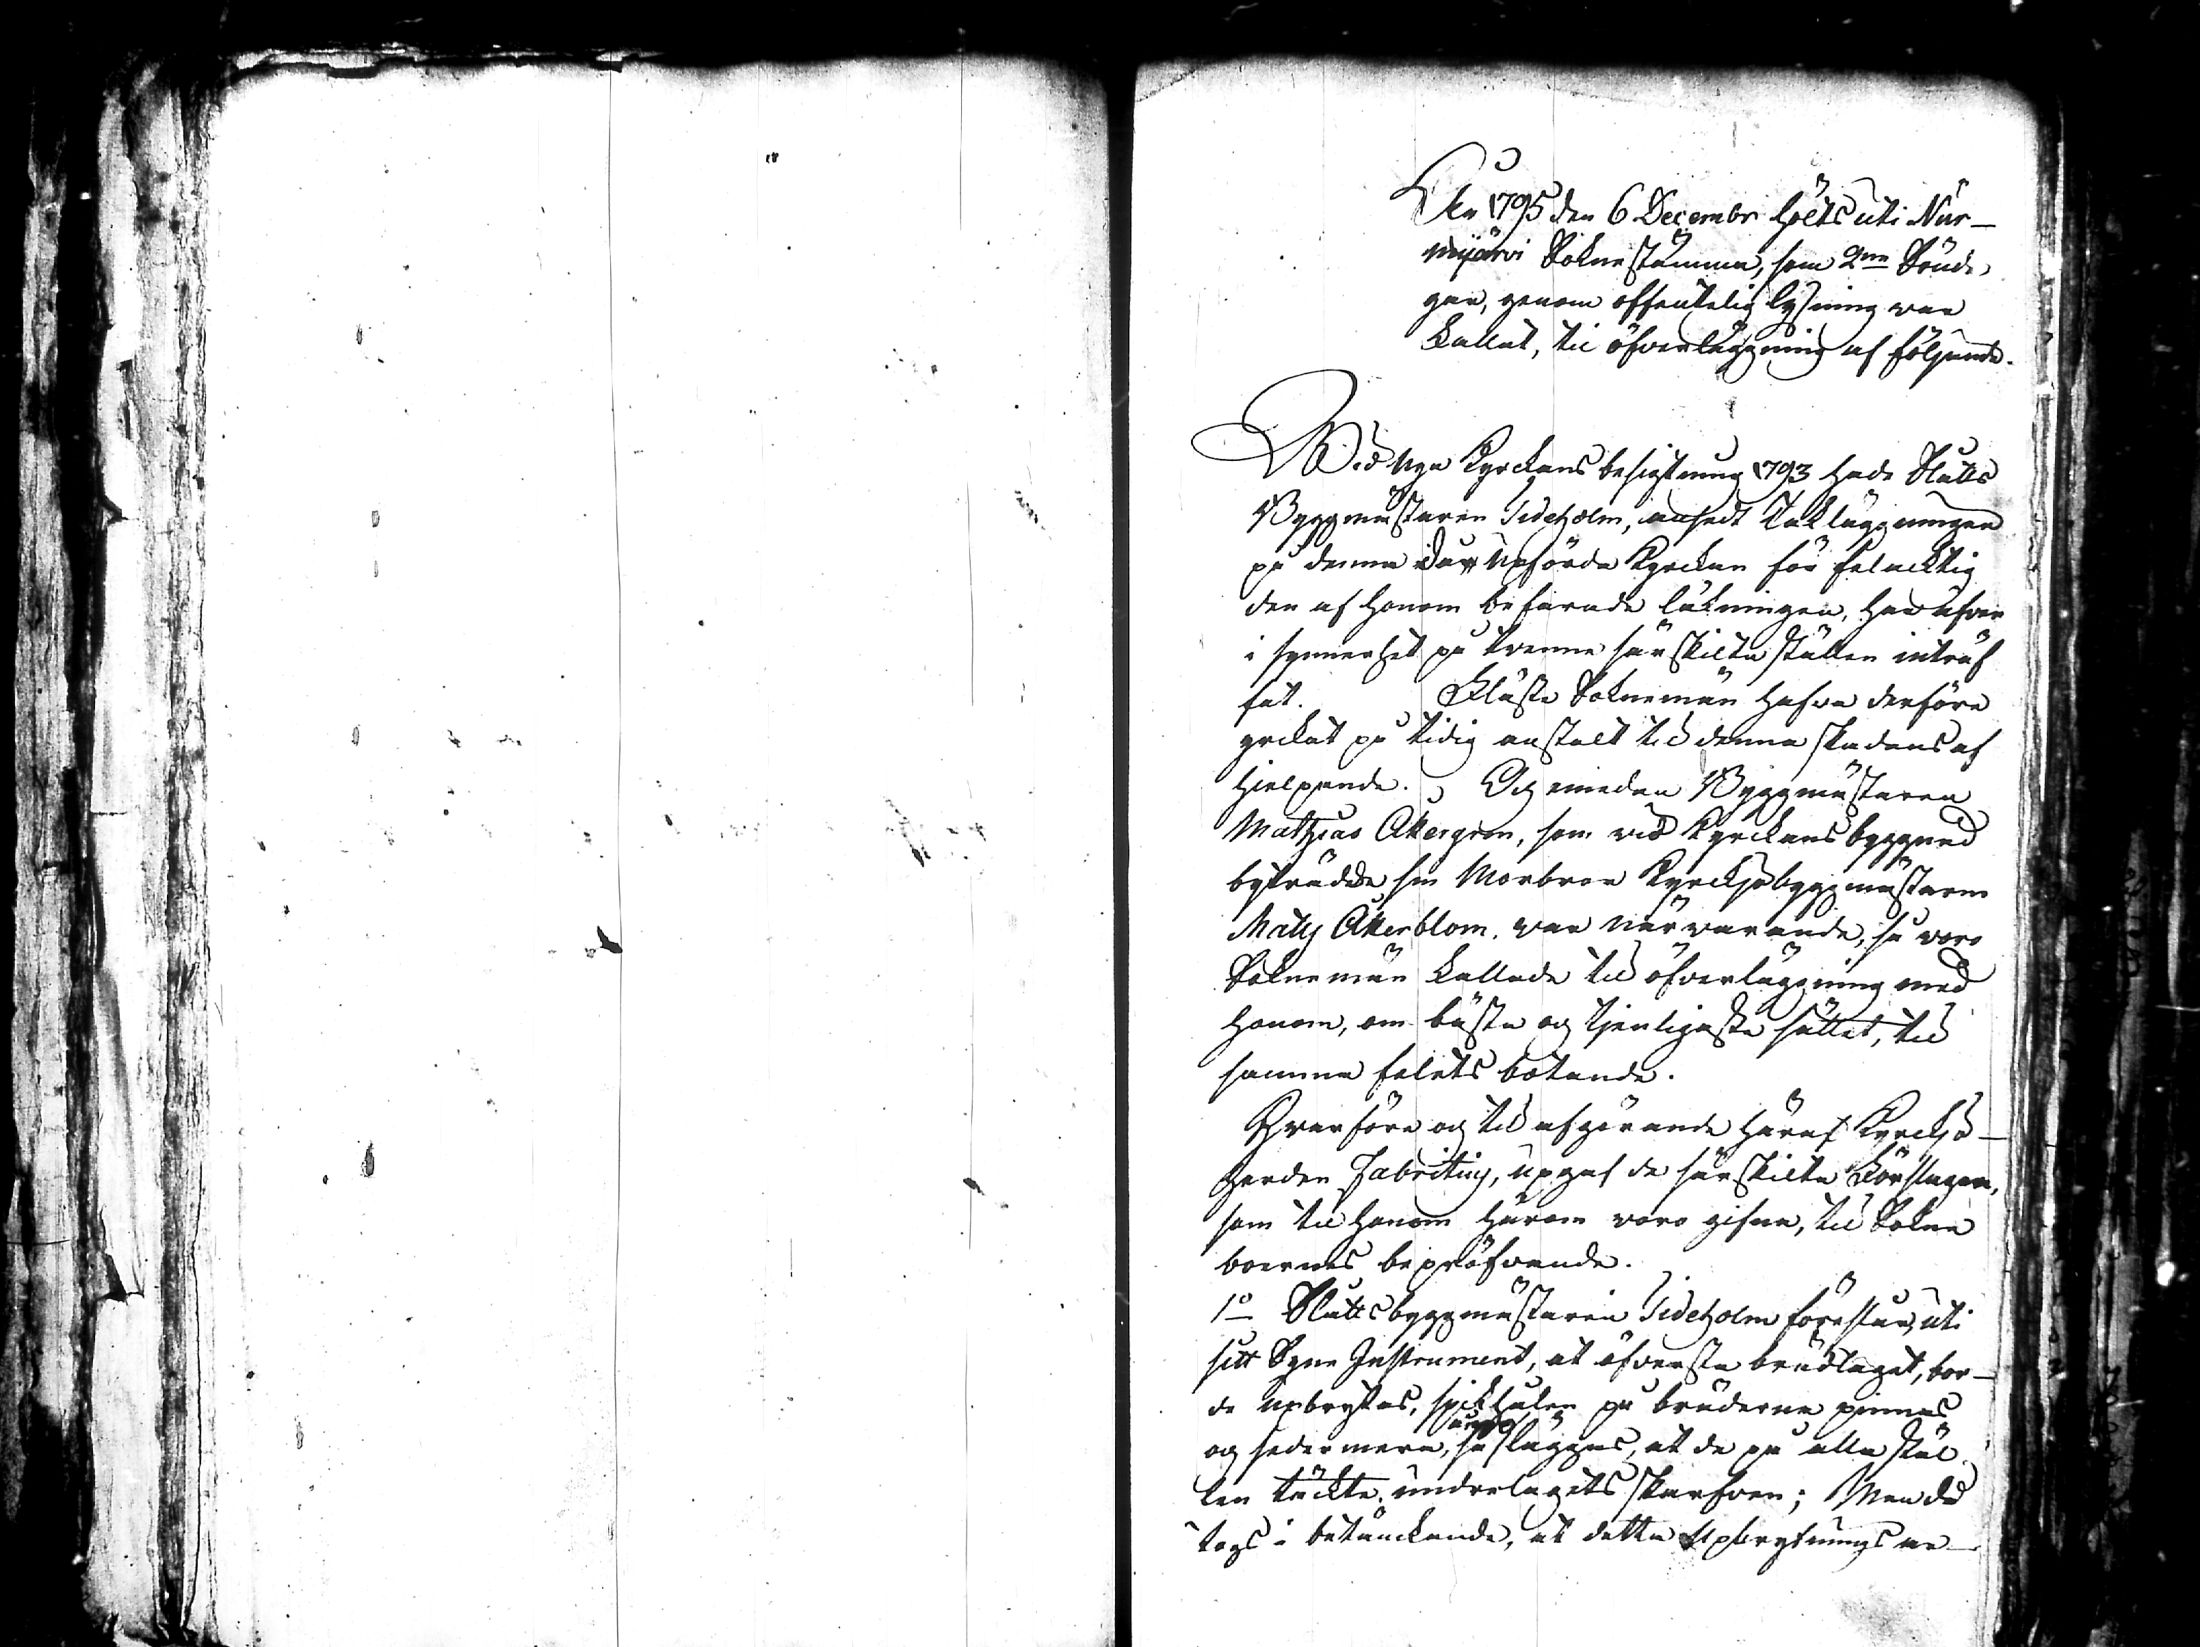 År 1795 den 6 Decembr hölts uti Nur-
mijärvi Soknestämma, som 2ne Sönda-
gar, genom offentelig lysning var
kallat, til öfverläggning af följande.
Wid nya Kyrckans besigtning 1793 hade Slotts
Byggmästaren Tideholm, ansedt Takläggningen
på denna då upförda Kyrckan för felacktig
den af honom befarade läkningen, har äfven
i synnerhet på tvenne särskilta ställen inträf
fat. Kläste Soknemän hafva derföre
yrckat på tidig anstalt til denna skadans af
hjelpande. Och emedan Byggmästaren
Mathias Åkergren, som vid Kyrckans byggnad
biträdde sin Morbror Kyrckjobyggmästaren
Maths Åkerblom, var närvarande, så voro
Soknemän kallade til öfverläggning med
honom, om bästa og tjenligaste sättet, til
samma felets botande.
Hvarföre og til afgörande häraf Kyrckjo-
herden Fabritius, upgaf de särskilta förslagen,
som til honom härom voro gifna, til Sokne
boernes bepröfvande.
1o Slottsbyggmästaren Tideholm föreslår, uti
sitt Syne Instrument, at öfversta brädlaget, bor-
de upbrytas, spikhålen på bräderna pinnas
og sedermera, så läggas, at de på alla stäl
len täckte underlagets skarfven; Men då
togs i betänckande, at detta upbrytnings ar-